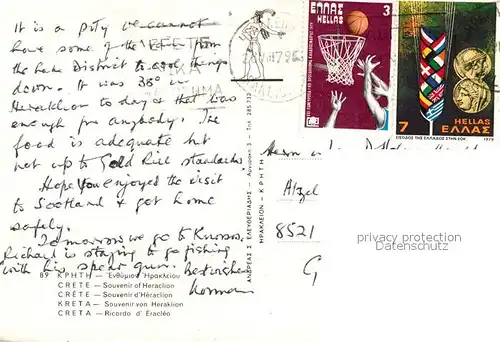 It is a pity we cannot
have some of the rain from
the Lake District to cool things
down. It was 38° in
Heraklion to day & that was
enough for anybody. The
food is adequate but
not up to Gold Rill standards
Hope you enjoyed the visit
to Scotland & got home
safely.
Tomorrow we go to Knossos
Richard is staying to go fishing
with his spear gun. Best wishes
Norman
89 ΚΡΗΤΗ — Ἐνθύμιον Ἡρακλείου
CRETE — Souvenir of Heraclion
CRÈTE — Souvenir d'Héraclion
KRETA — Souvenir von Heraklion
CRETA — Ricordo d' Eracléo
ΑΝΔΡΕΑΣ Σ ΕΛΕΥΘΕΡΙΑΔΗΣ
ΗΡΑΚΛΕΙΟΝ - ΚΡΗΤΗ
ΕΛΛΑΣ
HELLAS
3
7
HELLAS
ΕΛΛΑΣ
ΕΙΣΟΔΟΣ ΤΗΣ ΕΛΛΑΔΟΣ ΣΤΗΝ ΕΟΚ
1979
Herrn
Atzel
8521
privacy protection
Datenschutz